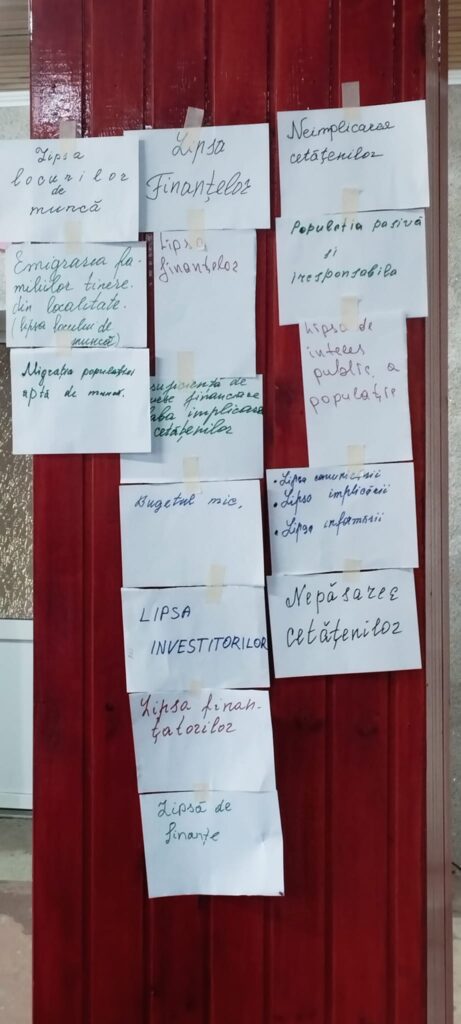 Lipsa
locurilor
de
muncă
Emigrarea fa-
miliilor tinere
din localitate.
(lipsa locului de
muncă)
Migrația populației
aptă de muncă.
Lipsa
Finanțelor
Lipsa
finanțelor
suficientă de
financiare
laba implicarea
cetățenilor
Bugetul mic.
LIPSA
INVESTITORILOR
Lipsa finan-
țatorilor
Lipsă de
finanțe
Neimplicarea
cetățenilor
Populația pasivă
și
iresponsabila
Lipsa de
interes
public, a
populație
• Lipsa comunicării
• Lipsa implicării
• Lipsa informării
Nepăsarea
cetățenilor